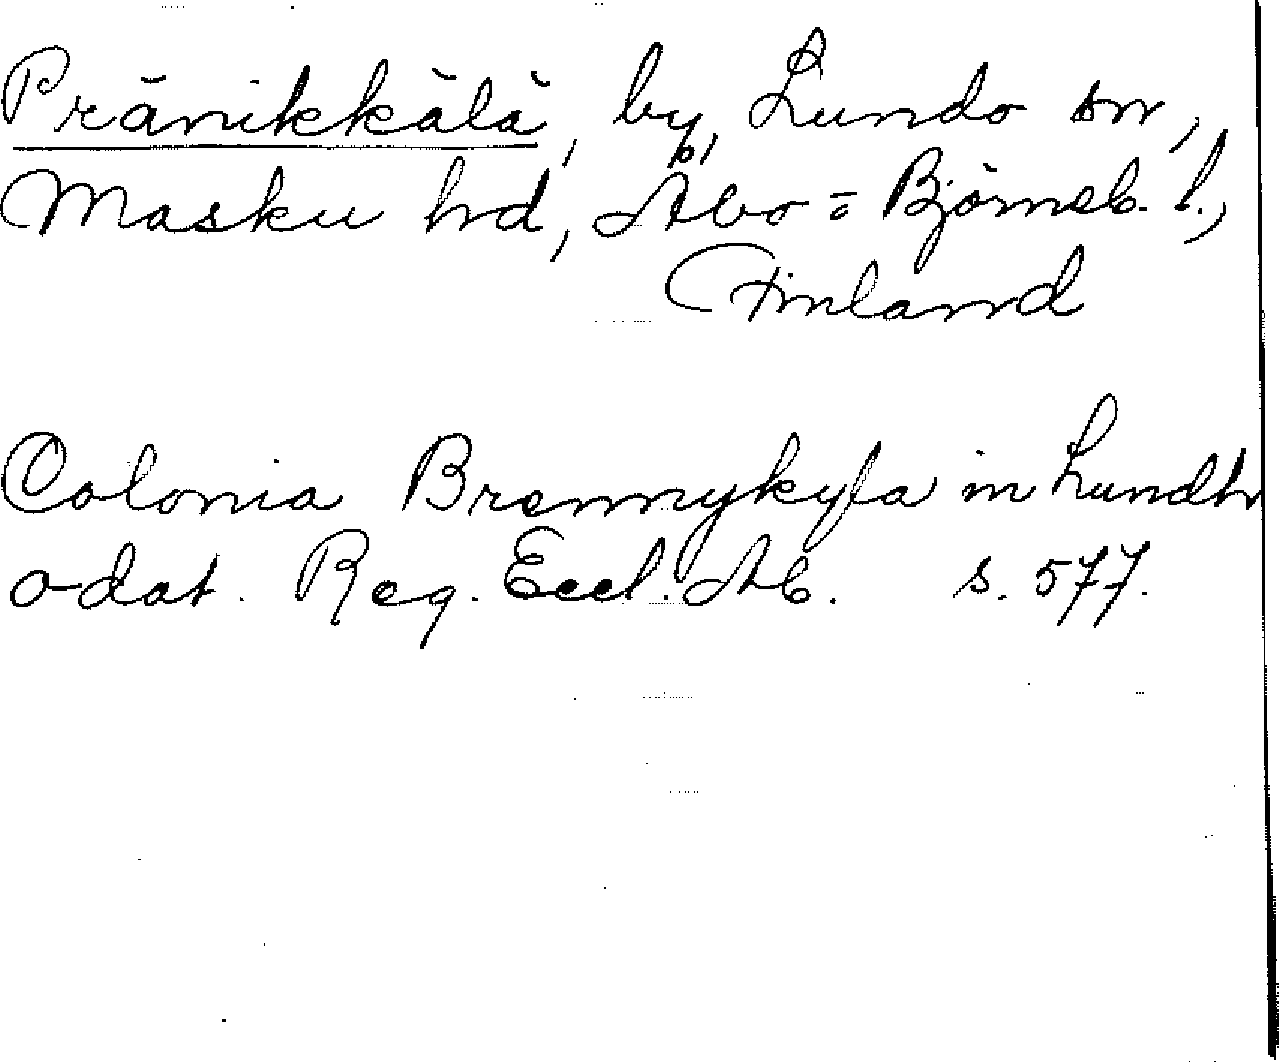 Pränikkälä, by, Lundo sn,
Masku hd, Åbo=Björneb. l.,
Finland
Colonia Brennykyla in Lundh
odat. Reg. Eccl. Ab. s. 577.